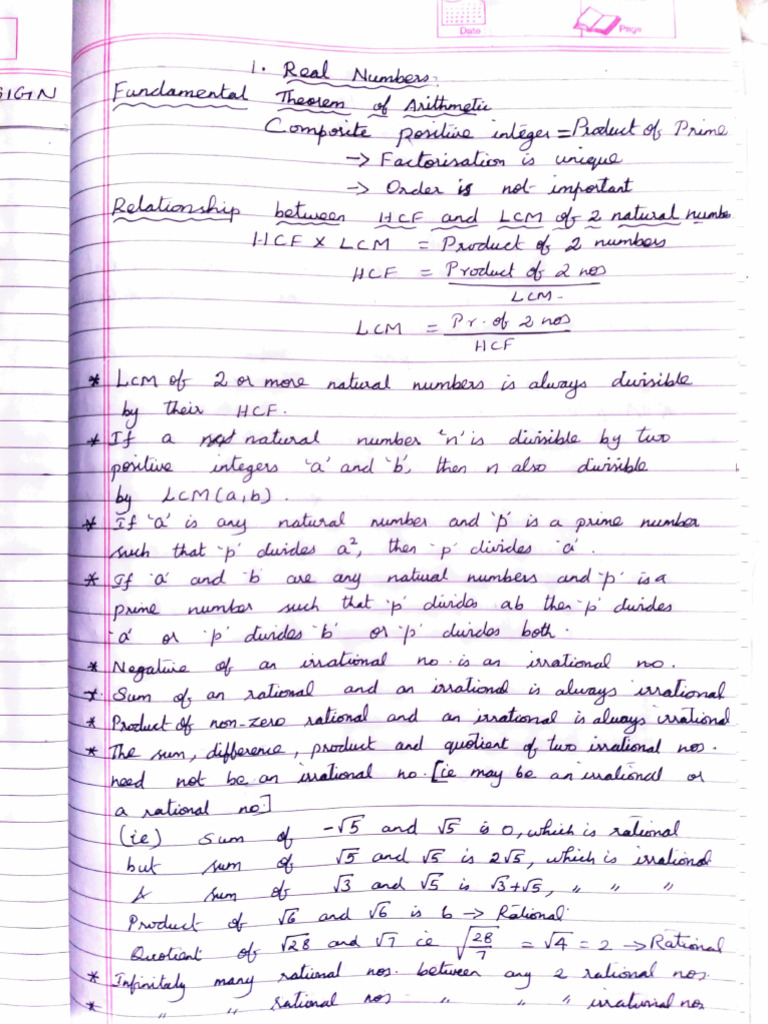 Date
Page
SIGN
1. Real Numbers.
Fundamental Theorem of Arithmetic
Composite positive integer = Product of Prime
→ Factorisation is unique
→ Order is not important
Relationship between HCF and LCM of 2 natural numbe
HCF × LCM = Product of 2 numbers
HCF = Product of 2 nos
LCM
LCM = Pr. of 2 nos
HCF
* LCM of 2 or more natural numbers is always divisible
by their HCF.
* If a natural number 'n' is divisible by two
positive integers 'a' and 'b', then n also divisible
by LCM(a,b).
* If 'a' is any natural number and 'p' is a prime number
such that 'p' divides a², then 'p' divides 'a'.
* If 'a' and 'b' are any natural numbers and 'p' is a
prime number such that 'p' divides ab then 'p' divides
'a' or 'p' divides 'b' or 'p' divides both.
* Negative of an irrational no. is an irrational no.
* Sum of an rational and an irrational is always irrational
* Product of non-zero rational and an irrational is always irrational
* The sum, difference, product and quotient of two irrational nos.
need not be an irrational no. [ie may be an irrational or
a rational no.]
(ie) Sum of -√5 and √5 is 0, which is rational
but sum of √5 and √5 is 2√5, which is irrational
& sum of √3 and √5 is √3+√5, " " "
Product of √6 and √6 is 6 → Rational
Quotient of √28 and √7 ie √28/7 = √4 = 2 → Rational
* Infinitely many rational nos. between any 2 rational nos.
* " " rational nos " " " irrational nos